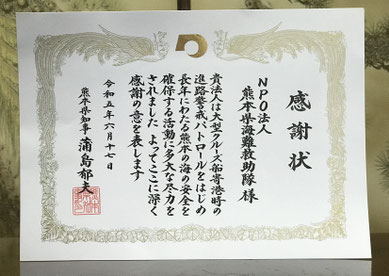 感謝状
NPO法人
熊本県海難救助隊 様
貴法人は大型クルーズ船寄港時の
進路警戒パトロールをはじめ
長年にわたる熊本の海の安全を
確保する活動に多大な尽力を
されました よってここに深く
感謝の意を表します
令和五年六月十七日
熊本県知事 蒲島郁夫